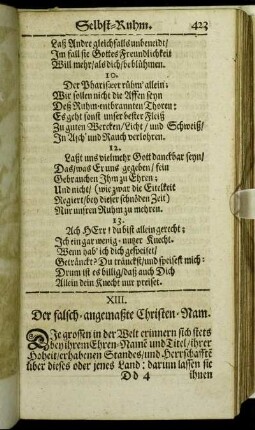 Selbst-Ruhm. 423
Laß Andre gleichfalls unbeneidt/
Im fall sie Gottes Freundlichkeit
Will mehr/als dich/beblühmen.
10.
Der Phariseer rühm' allein;
Wir sollen nicht die Affen seyn
Deß Ruhm-entbrannten Thoren:
Es geht sonst unser bester Fleiß
Zu guten Wercken/Licht/und Schweiß/
In Asch' und Rauch verlohren.
12.
Laßt uns vielmehr Gott danckbar seyn/
Das/was Er uns gegeben/fein
Gebrauchen Ihm zu Ehren;
Und nicht/(wie zwar die Eitelkeit
Regiert/bey dieser schnöden Zeit)
Nur unsren Ruhm zu mehren.
13.
Ach HErr! du bist allein gerecht;
Ich ein gar wenig-nutzer Knecht.
Wenn hab' ich dich gespeiset/
Getränckt? Du tränckst/und speisest mich:
Drum ist es billig/daß auch Dich
Allein dein Knecht nur preiset.
XIII.
Der falsch-angemaßte Christen-Nam.
DIe grossen in der Welt erinnern sich stets
bey ihrem Ehren-Name und Titel/ihrer
Hoheit/erhabenen Standes/und Herrschafft
über dieses oder jenes Land: darum lassen sie
Dd 4 ihnen